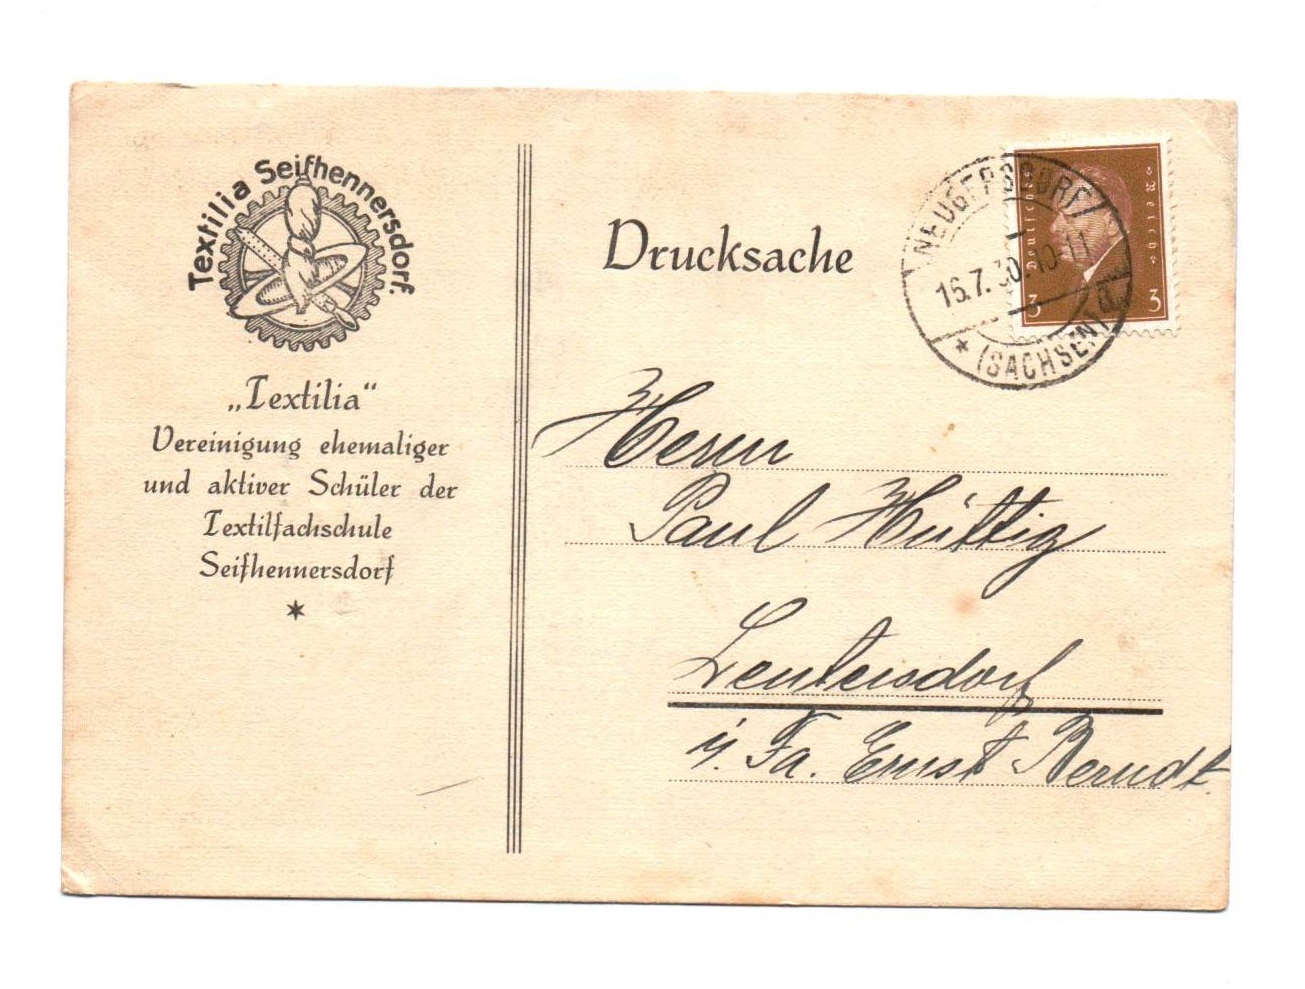 Textilia Seifhennersdorf.
„Textilia“
Vereinigung ehemaliger
und aktiver Schüler der
Textilfachschule
Seifhennersdorf
Drucksache
NEUGERSDORF
16.7.30.10-11
* (SACHSEN) d
Deutsches Reich
3 3
Herrn
Paul Hüttig
Leutersdorf
i. Fa. Ernst Berndt.